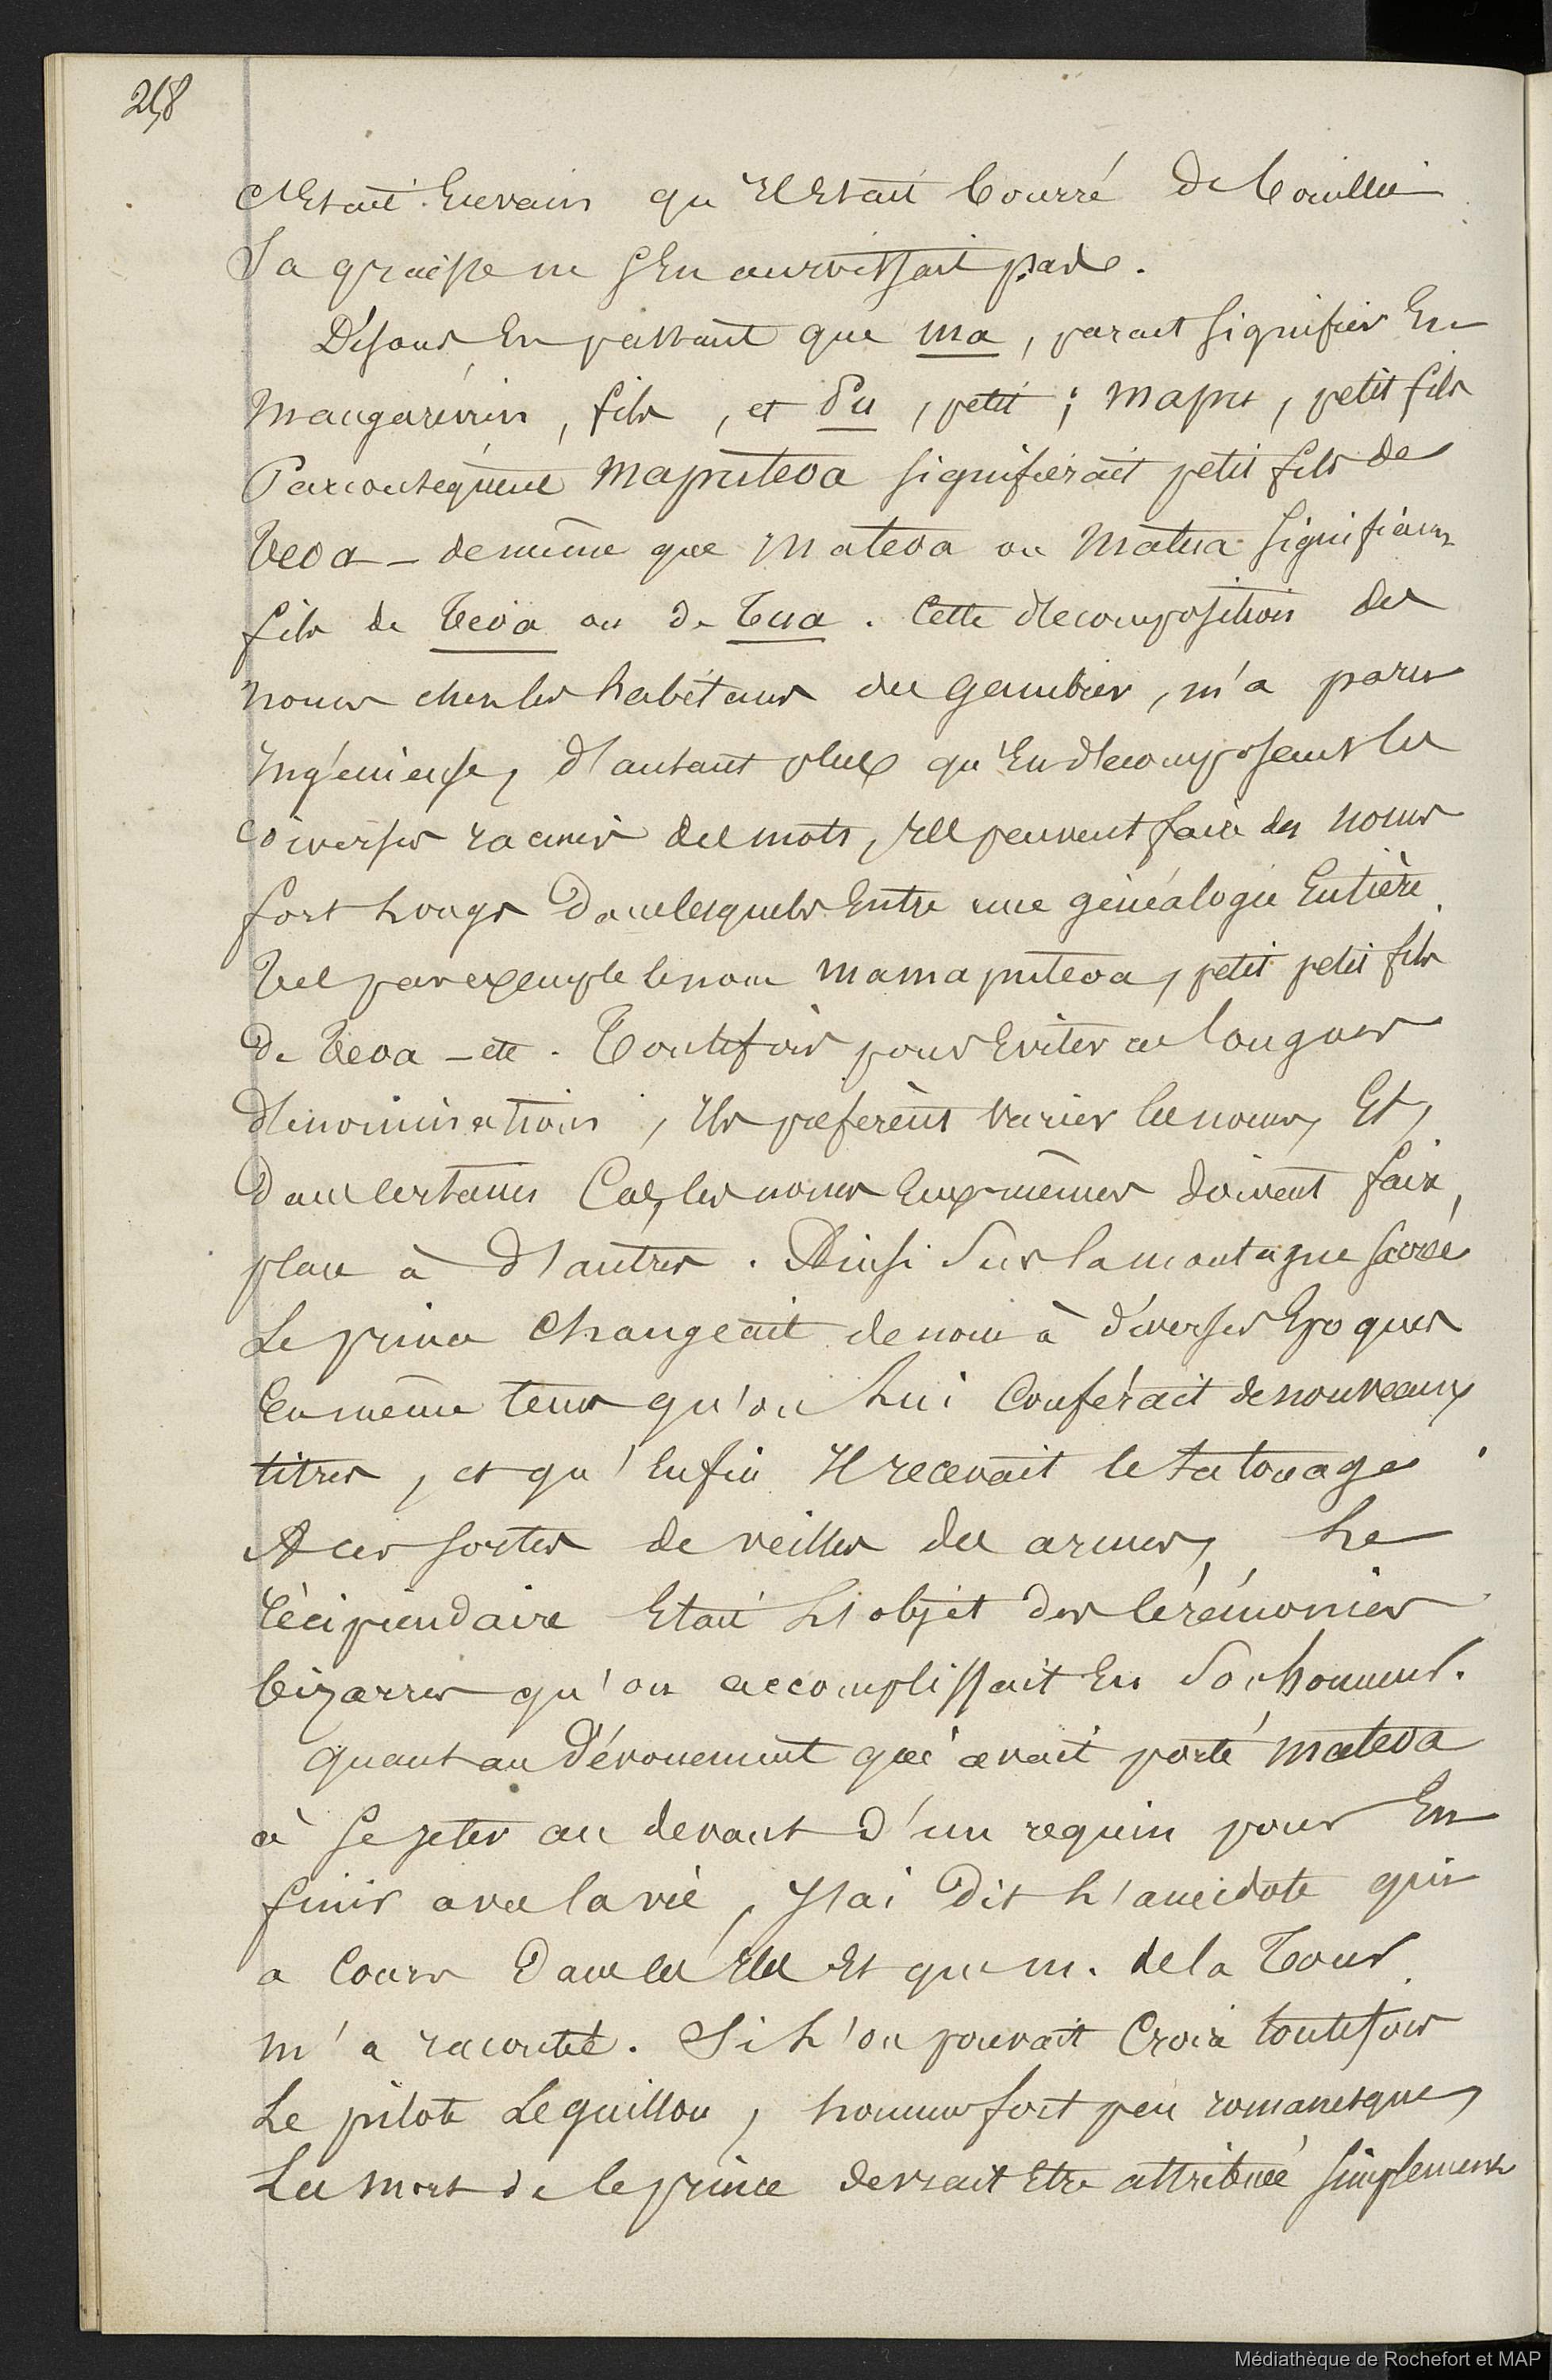 258
C'Etait Envain qu'Il Etait bourré de bouillie
Sa graisse ne s'En amoindrissait pas.
Disons En passant que ma, parait signifier En
Mangarévien, fils, et Pu, petit; Mapu, petit fils
Par conséquent Maputeoa signifierait petit fils de
Teoa - de même que Mateoa ou Matua signifiant
fils de Teoa ou de Tua. Cette décomposition des
noms chez les habitans des Gambier, m'a paru
Ingénieuse, d'autant plus qu'En décomposant les
diverses racines des mots, Ils peuvent faire des noms
fort longs dans lesquels Entre une généalogie Entière.
Tel par exemple le nom Mamaputeoa, petit petit fils
de Teoa - etc. Toutefois pour Eviter ces longues
dénominations, Ils préfèrent varier les noms, Et,
dans certains cas, les noms Eux-mêmes doivent faire,
place à d'autres. Ainsi sur la montagne sacrée
Le prince changeait de nom à diverses Epoques
En même tems qu'on lui conférait de nouveaux
titres, et qu'Enfin Il recevait le tatouage.
A ces sortes de veilles des armes, Le
récipiendaire Etait L'objet des cérémonies
bizarres qu'on accomplissait En son honneur.
Quant au dévouement qui avait porté Mateoa
à se jeter au devant d'un requin pour En
finir avec la vie, J'ai dit L'anecdote qui
a cours dans les Iles Et que M. de la Tour
m'a racontée. Si L'on pouvait croire toutefois
Le pilote Leguillou, homme fort peu romanesque,
La mort de ce prince devrait Etre attribuée simplement
Médiathèque de Rochefort et MAP